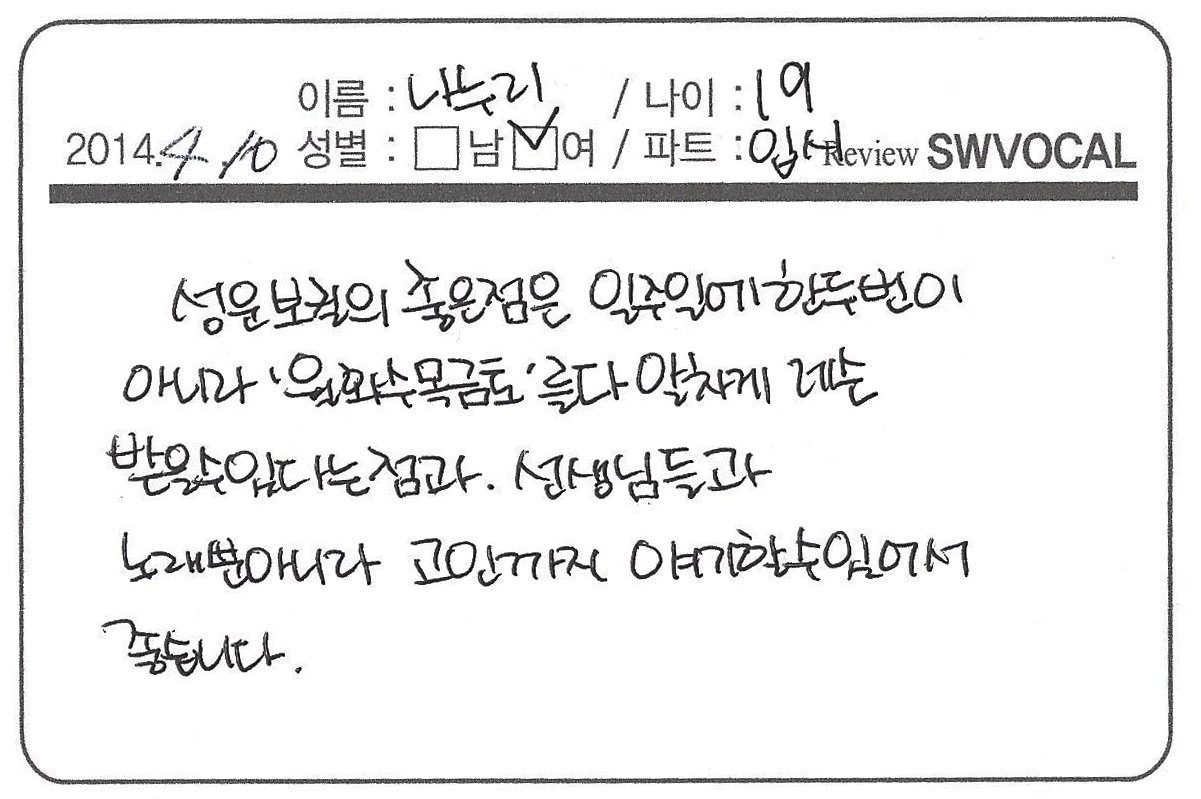 이름 : 나누리 / 나이 : 19
2014.4.10 성별 : 남 여 / 파트 : 입시 Review SWVOCAL
성운보컬의 좋은점은 일주일에 한두번이
아니라 '월화수목금토' 를다 알차게 레슨
받을수있다는점과. 선생님들과
노래뿐아니라 고민까지 얘기할수있어서
좋습니다.